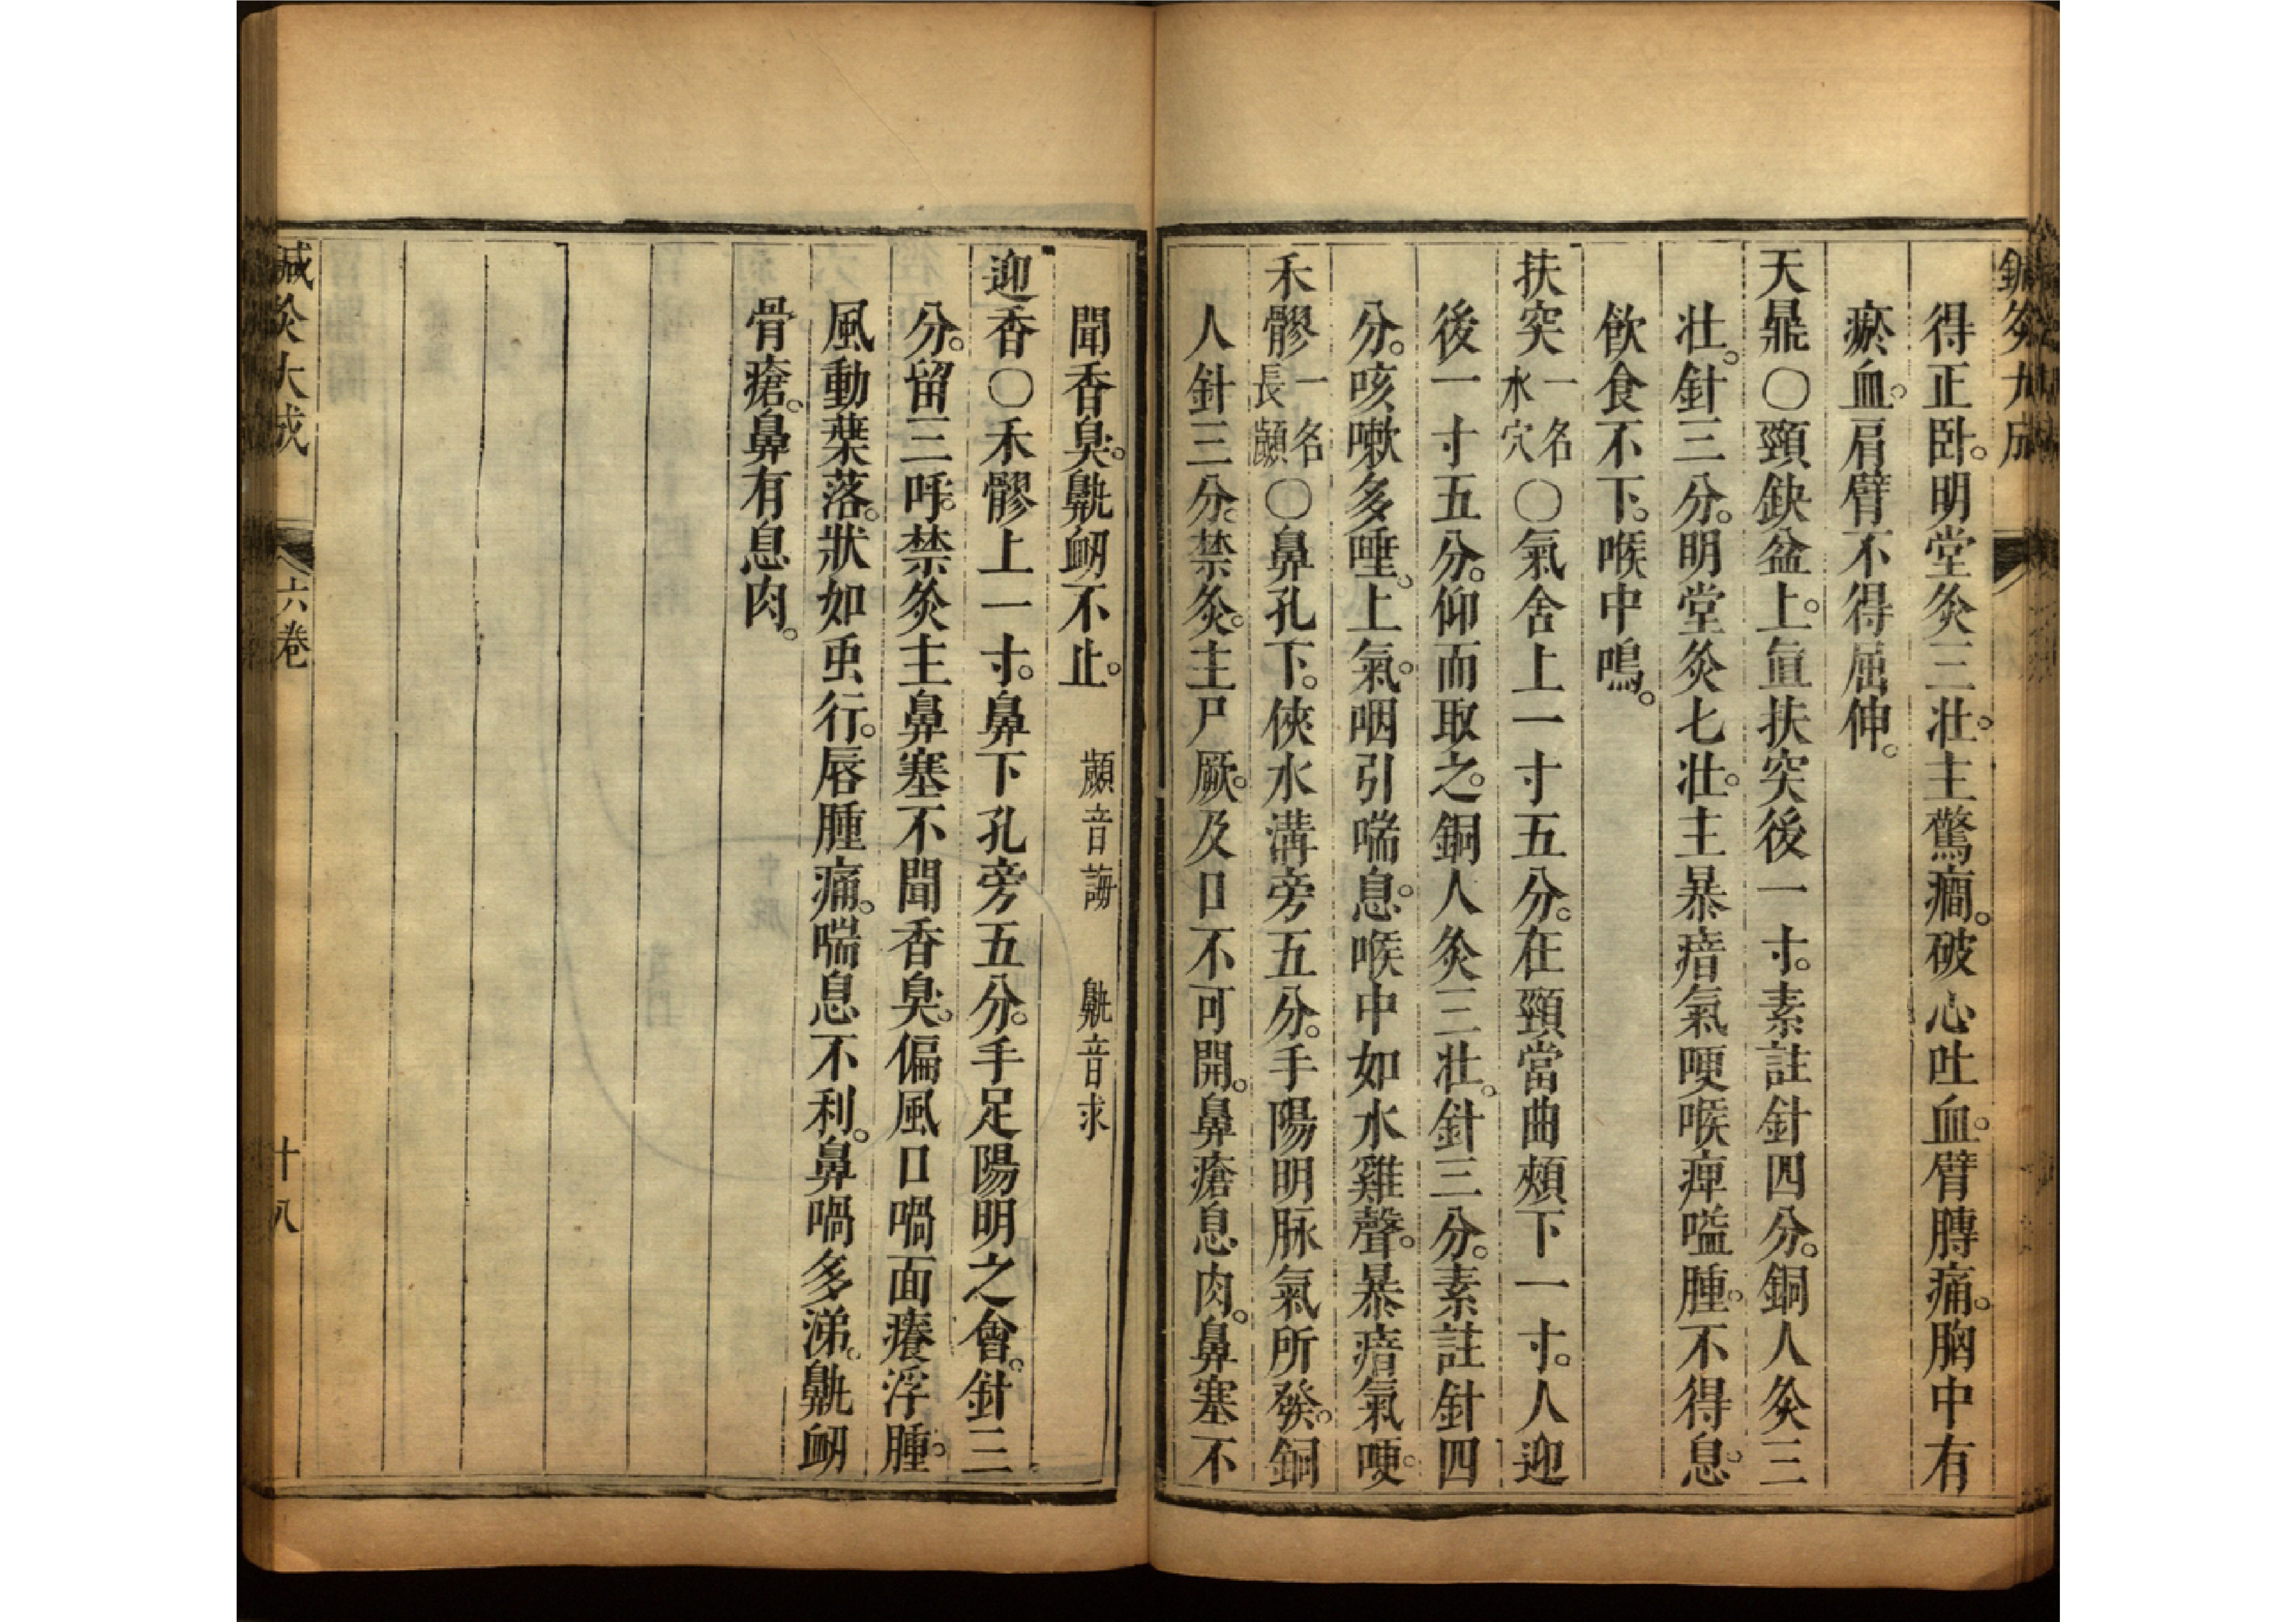 得正卧。明堂灸三壯。主驚癎。破心吐血。臂膊痛。胸中有
瘀血。肩臂不得屈伸。
天鼎○頸缺盆上。直扶突後一寸。素註針四分。銅人灸三
壯。針三分。明堂灸七壯。主暴瘖氣哽喉痺嗌腫。不得息。
飲食不下。喉中鳴。
扶突一名水穴○氣舍上一寸五分。在頸當曲頰下一寸。人迎
後一寸五分。仰而取之。銅人灸三壯。針三分。素註針四
分。咳嗽多唾。上氣。咽引喘息。喉中如水雞聲。暴瘖氣哽。
禾髎一名長顪○鼻孔下。俠水溝旁五分。手陽明脉氣所發。銅
人針三分。禁灸。主尸厥。及口不可開。鼻瘡息肉。鼻塞不
聞香臭。鼽衂不止。 顪音誨 鼽音求
迎香○禾髎上一寸。鼻下孔旁五分。手足陽明之會。針三
分。留三呼。禁灸主鼻塞不聞香臭。偏風口喎面癢浮腫。
風動葉落。狀如虫行。唇腫痛。喘息不利。鼻喎多涕。鼽衂
骨瘡。鼻有息肉。
鍼灸大成 六卷 十八